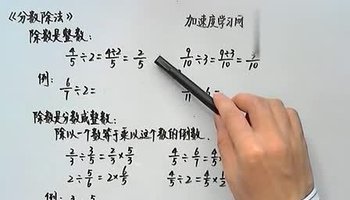 《分数除法》 加速度学习网
除数是整数:
4/5÷2=4÷2/5=2/5 9/10÷3=9÷3/10=3/10
例:
6/7÷2=
除数是分数或整数:
除以一个数等于乘以这个数的倒数.
2/3÷3/5=2/3×5/3 4/5÷6/7=4/5×
2÷5/6=2×6/5 4/5÷2=4/5×
例: 3 5